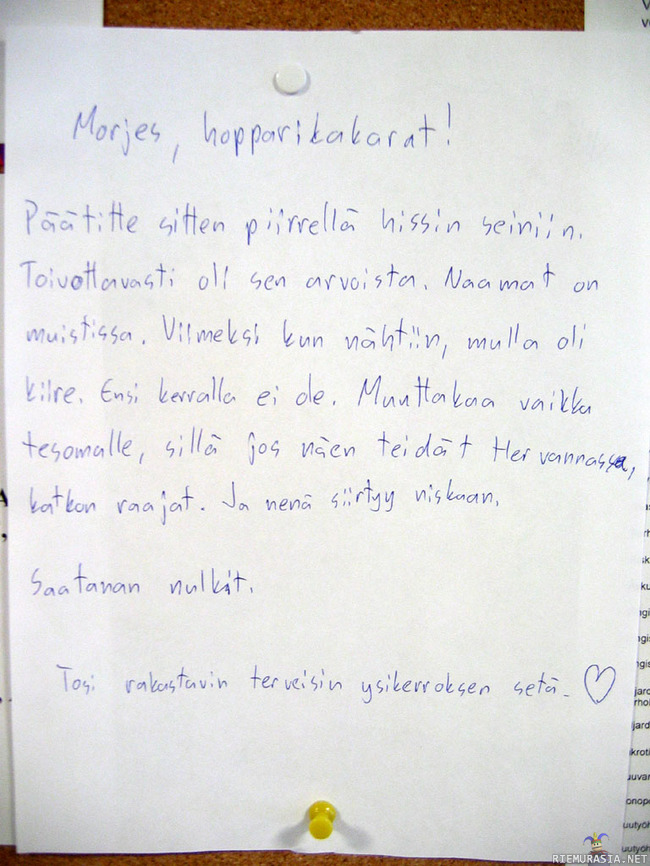 Morjes, hopparikakarat!
Päätitte sitten piirrellä hissin seiniin.
Toivottavasti oli sen arvoista. Naamat on
muistissa. Viimeksi kun nähtiin, mulla oli
kiire. Ensi kerralla ei ole. Muuttakaa vaikka
tesomalle, sillä jos näen teidät Hervannassa,
katkon raajat. Ja nenä siirtyy niskaan.
Saatanan nulkit.
Tosi rakastavin terveisin ysikerroksen setä.
RIEMURASIA.NET